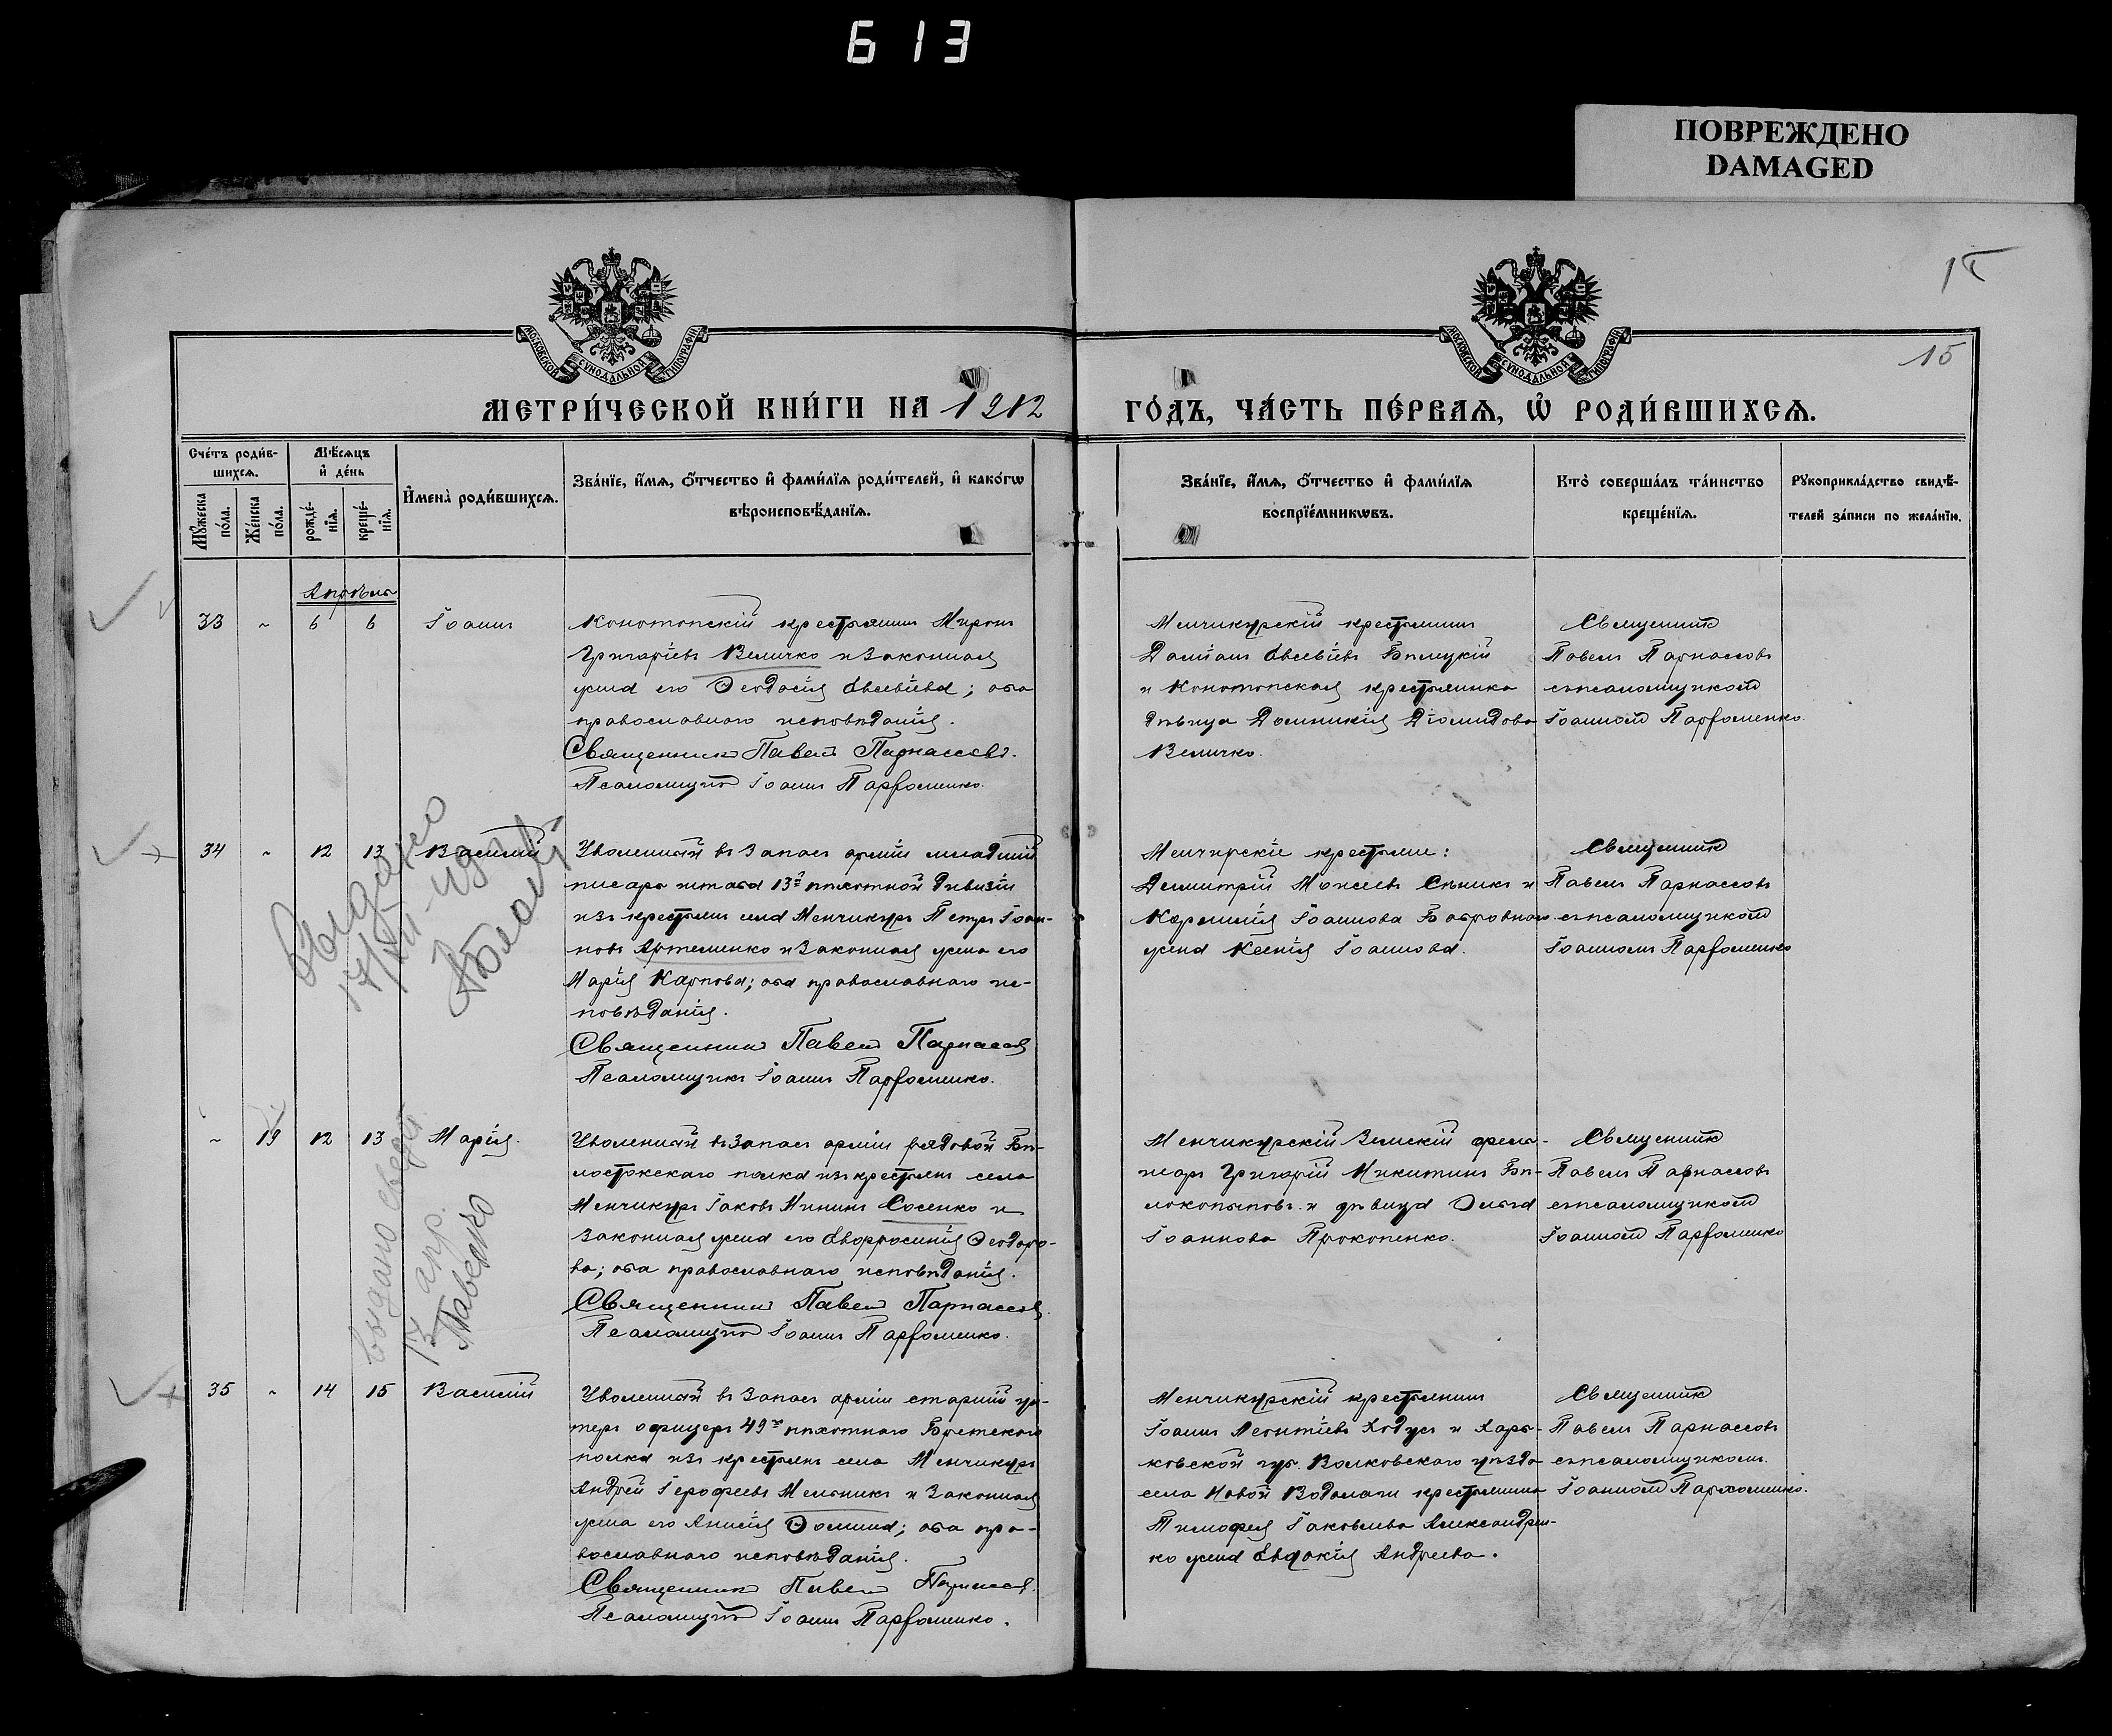 613
ПОВРЕЖДЕНО
DAMAGED
15
15
МОСКОВСКОЙ СѴНОДАЛЬНОЙ ТИПОГРАФІИ
МОСКОВСКОЙ СѴНОДАЛЬНОЙ ТИПОГРАФІИ
МЕТРИ́ЧЕСКОЙ КНИ́ГИ НА 1912
ГО́ДЪ, ЧА́СТЬ ПЕ́РВАѦ, Ѽ РОДИ́ВШИХСѦ.
Сче́тъ роди́в-
шихсѧ.
Мѣ́сѧцъ
и҆ де́нь
Мꙋ́жеска
по́ла.
Же́нска
по́ла.
рожде́-
нїѧ.
креще́-
нїѧ.
И҆мена̀ роди́вшихсѧ.
Зва́нїе, и҆́мѧ, ѻ҆́тчество и҆ фами́лїѧ роди́телей, и҆ како́гѡ
вѣроисповѣ́данїѧ.
Зва́нїе, и҆́мѧ, ѻ҆́тчество и҆ фами́лїѧ
воспрїе́мникѡвъ.
Кто̀ соверша́лъ та́инство
креще́нїѧ.
Рꙋкоприкла́дство свидѣ́-
телей за́писи по жела́нїю.
Апрѣль
33 ~ 6 6 Іоаннъ
Конотопскій крестьянинъ Миронъ
Григоріевъ Величко и законная
жена его Ѳеодосія Евсевіева; оба
православнаго исповѣданія.
Священникъ Павелъ Парнассовъ.
Псаломщикъ Іоаннъ Парфоменко.
Менчикурскій крестьянинъ
Даміанъ Евсевіевъ Билецкій
и Конотопская крестьянка
дѣвица Домникія Діомидова
Величко.
Священникъ
Павелъ Парнассовъ
съ псаломщикомъ
Іоанномъ Парфоменко.
34 ~ 12 13 Василій
Уволенный въ запасъ арміи младшій
писарь штаба 13й пѣхотной дивизіи
изъ крестьянъ села Менчикуръ Петръ Іоан-
новъ Артеменко и законная жена его
Марія Карпова; оба православнаго ис-
повѣданія.
Священникъ Павелъ Парнассовъ
Псаломщикъ Іоаннъ Парфоменко.
Менчирскіе крестьяне:
Димитрій Моисеевъ Сѣникъ и
Корнилія Іоаннова Бобровнаго
жена Ксенія Іоаннова.
Священникъ
Павелъ Парнассовъ
съ псаломщикомъ
Іоанномъ Парфоменко
Выдано
17/VIII
~ 19 12 13 Марія.
Уволенный въ запасъ арміи рядовой Бѣ-
лостокскаго полка изъ крестьянъ села
Менчикуръ Іаковъ Мининъ Сосенко и
законная жена его Евфросинія Ѳеодоро-
ва; оба православнаго исповѣданія.
Священникъ Павелъ Парнассовъ.
Псаломщикъ Іоаннъ Парфоменко.
Менчикурскій Земскій фельд-
шеръ Григорій Никитинъ Бѣ-
локопытовъ и дѣвица Ольга
Іоаннова Прокопенко.
Священникъ
Павелъ Парнассовъ
съ псаломщикомъ
Іоанномъ Парфоменко
выдано
13 апр.
35 ~ 14 15 Василій
Уволенный въ запасъ арміи старшій ун-
теръ офицеръ 49го пѣхотнаго Брестскаго
полка изъ крестьянъ села Менчикуръ
Андрей Іерофеевъ Мельникъ и законная
жена его Анисія Ѳомина; оба пра-
вославнаго исповѣданія.
Священникъ Павелъ Парнассовъ.
Псаломщикъ Іоаннъ Парфоменко.
Менчикурскій крестьянинъ
Іоаннъ Леонтіевъ Ходусъ и Харь-
ковской губ. Волковскаго уѣзда
села Новой Водолаги крестьянина
Тимофея Іаковлева Александрен-
ко жена Евдокія Андреева.
Священникъ
Павелъ Парнассовъ
съ псаломщикомъ.
Іоанномъ Пархоменко.